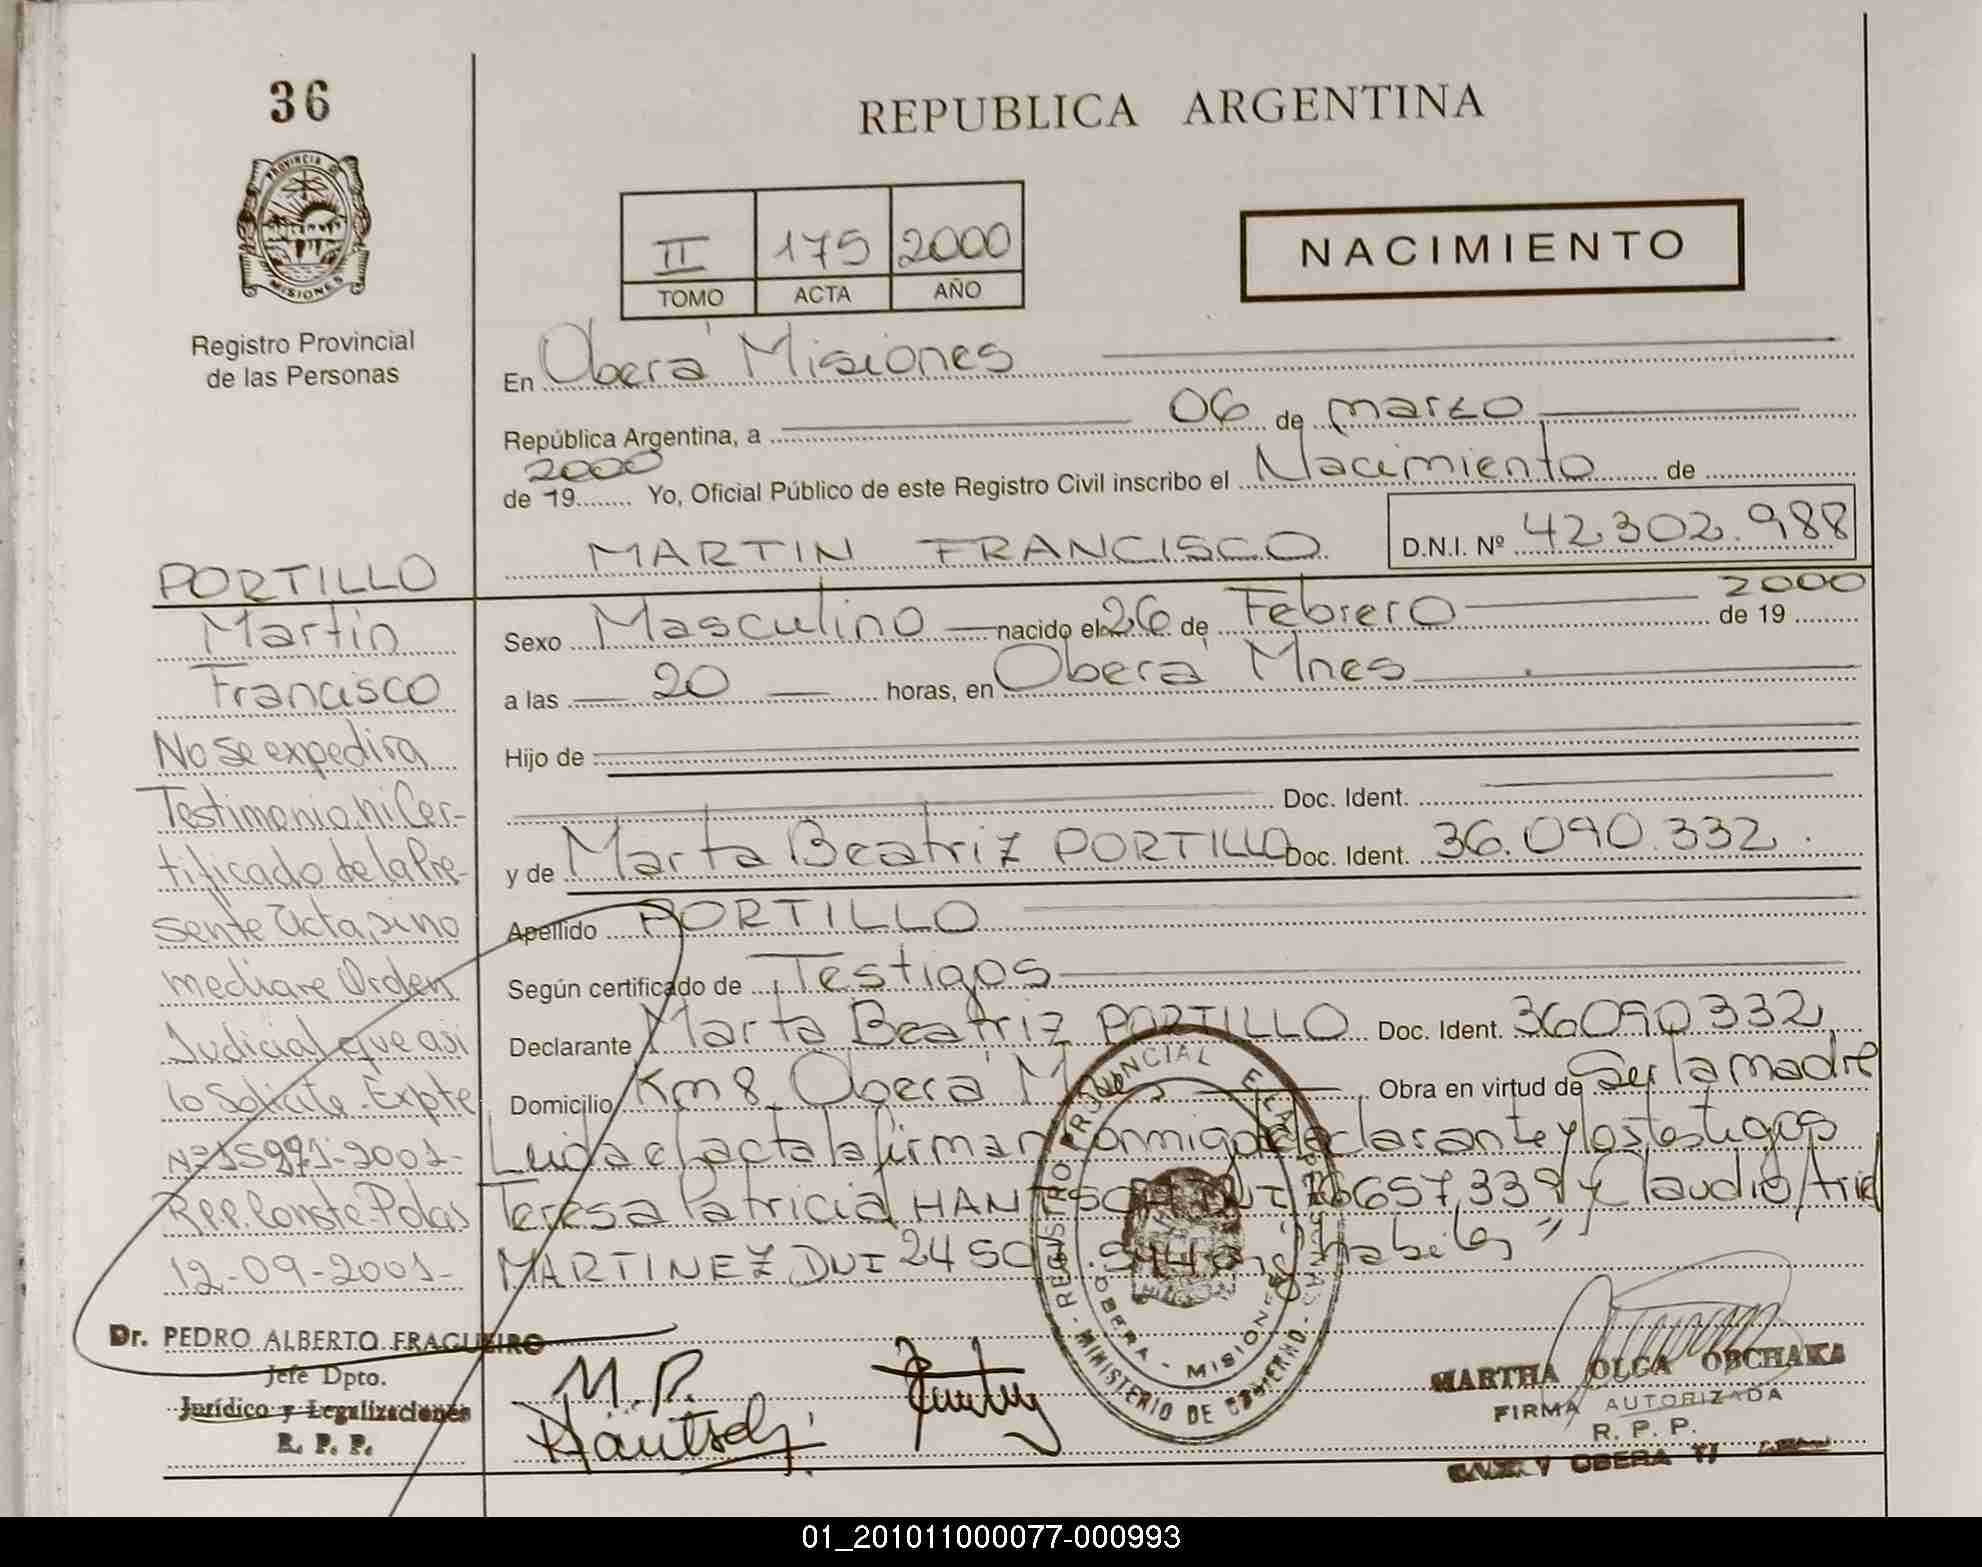 36
REPUBLICA ARGENTINA
PROVINCIA DE
MISIONES
Registro Provincial
de las Personas
II 175 2000
TOMO ACTA AÑO
NACIMIENTO
En Oberá Misiones
República Argentina, a 06 de marzo
2000
de 19........ Yo, Oficial Público de este Registro Civil inscribo el Nacimiento de
MARTIN FRANCISCO D.N.I. Nº 42.302.988
Sexo Masculino nacido el 26 de Febrero de 19 2000
a las 20 horas, en Oberá Mnes
Hijo de
Doc. Ident.
y de Marta Beatriz PORTILLO Doc. Ident. 36.090.332
Apellido PORTILLO
Según certificado de Testigos
Declarante Marta Beatriz PORTILLO Doc. Ident. 36090332
Domicilio Km 8 Oberá Obra en virtud de Ser la madre
Leida el acta la firman conmigo declarante y los testigos
Teresa Patricia 657.339 y Claudio Ariel
MARTINEZ DUI habiles
PORTILLO
Martin
Francisco
No se expedira
Testimonio ni Cer-
tificado de la Pre-
sente Acta, sino
mediare Orden
Judicial que asi
lo Solicite. Expte
Rpp. Conste. Pdas
12-09-2001-
Dr. PEDRO ALBERTO FRAGUEIRO
Jefe Dpto.
Jurídico y Legalizaciones
R. P. P.
M. P.
REGISTRO PROVINCIAL DE LAS PERSONAS
MINISTERIO DE GOBIERNO
OBERA - MISIONES
MARTHA OLGA OBCHAKA
FIRMA AUTORIZADA
R. P. P.
OBERA
01_201011000077-000993